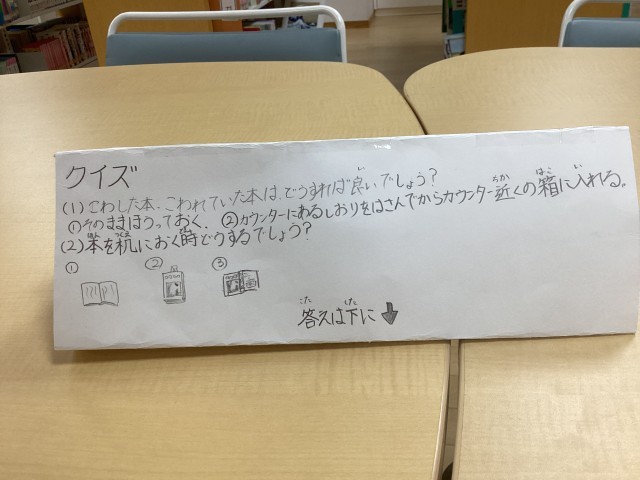 クイズ
(1)こわした本、こわれていた本は、どうすれば良いでしょう?
①そのままほうっておく、②カウンターにあるしおりをはさんでからカウンター近くの箱に入れる。
(2)本を机におく時どうするでしょう?
① ② ③
答えは下に↓